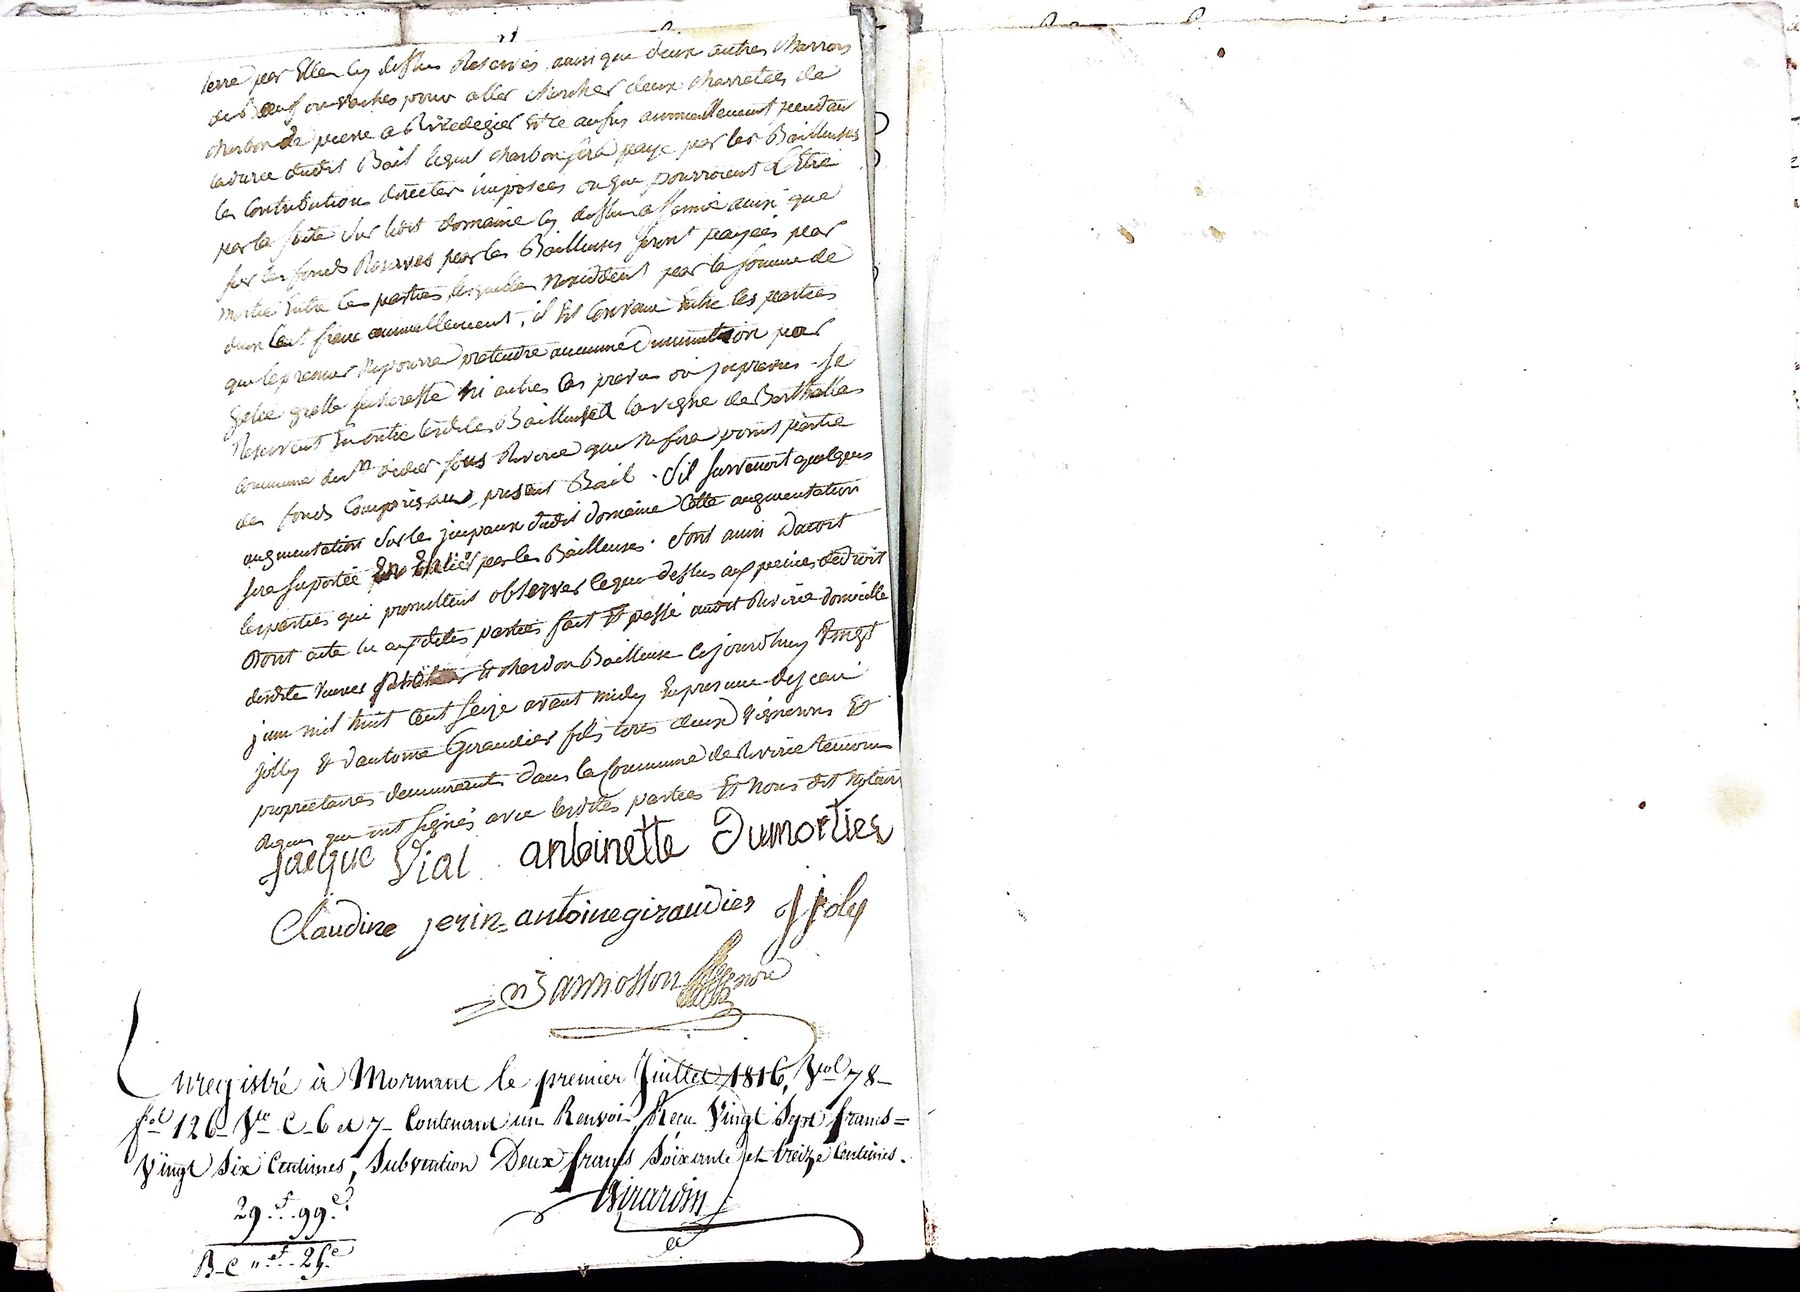 terre par Elles cy dessus Reservés ainsi que deux autres charrois
de Bœuf ou vaches pour aller chercher deux charretées de
charbon de pierre a Rivedegier Et ce aussy annuellement pendant
la durée dudit Bail lequel charbon sera payé par les Bailleuses
les Contributions directes imposées ou que pourroient L'Etre
par la suite sur ledit domaine cy dessus affermé ainsi que
sur les fonds Reservés par les Bailleuses seront payées par
moitié Entre les parties lesquelles par la somme de
deux Cent franc annuellement, il Est Convenu Entre les parties
que le preneur ne pourra pretendre aucune Diminution par
Gelée grelle secheresse ni autres Cas prevu ou jmprevus - Se
Reservent En outre lesdites Bailleuses la vigne de Berthollas
commune de St didier sous Riverie que ne fera point partie
des fonds Compris au present Bail. S'il survenoit quelques
augmentation sur les jmpaux dudit domaine Cette augmentation
sera suportée En Entier par les Bailleuses. Sont ainsi Dacort
les parties qui promettent observer leque dessus aux peines de Droit
Dont acte lu auxdites parties fait Et passé audit Riverie domicille
desdite veuves Et Bailleuse Cejourdhuy Vingt
juin mil huit Cent Seize avant midy En presence de jean
jolly Et d'antoine Giraudier fils tous deux vignerons Et
proprietaires demeurants dans la Commune de Riverie temoins
Requis que ont signés avec lesdites parties Et Nous dit Notaire
jacque Vial antoinette Dumortier
Claudine jerin antoine giraudier jjoly
Bannosson nore
Enregistré à Mornant le premier Juillet 1816, Vol 78
fol 126 Vo C. 6 et 7 Contenant un Renvoi, Reçu Vingt Sept francs
Vingt Six Centimes, Subvention Deux francs Soixante et treize Centimes.
Girardin
29 f. 99 c.
B-C " f. 25 c